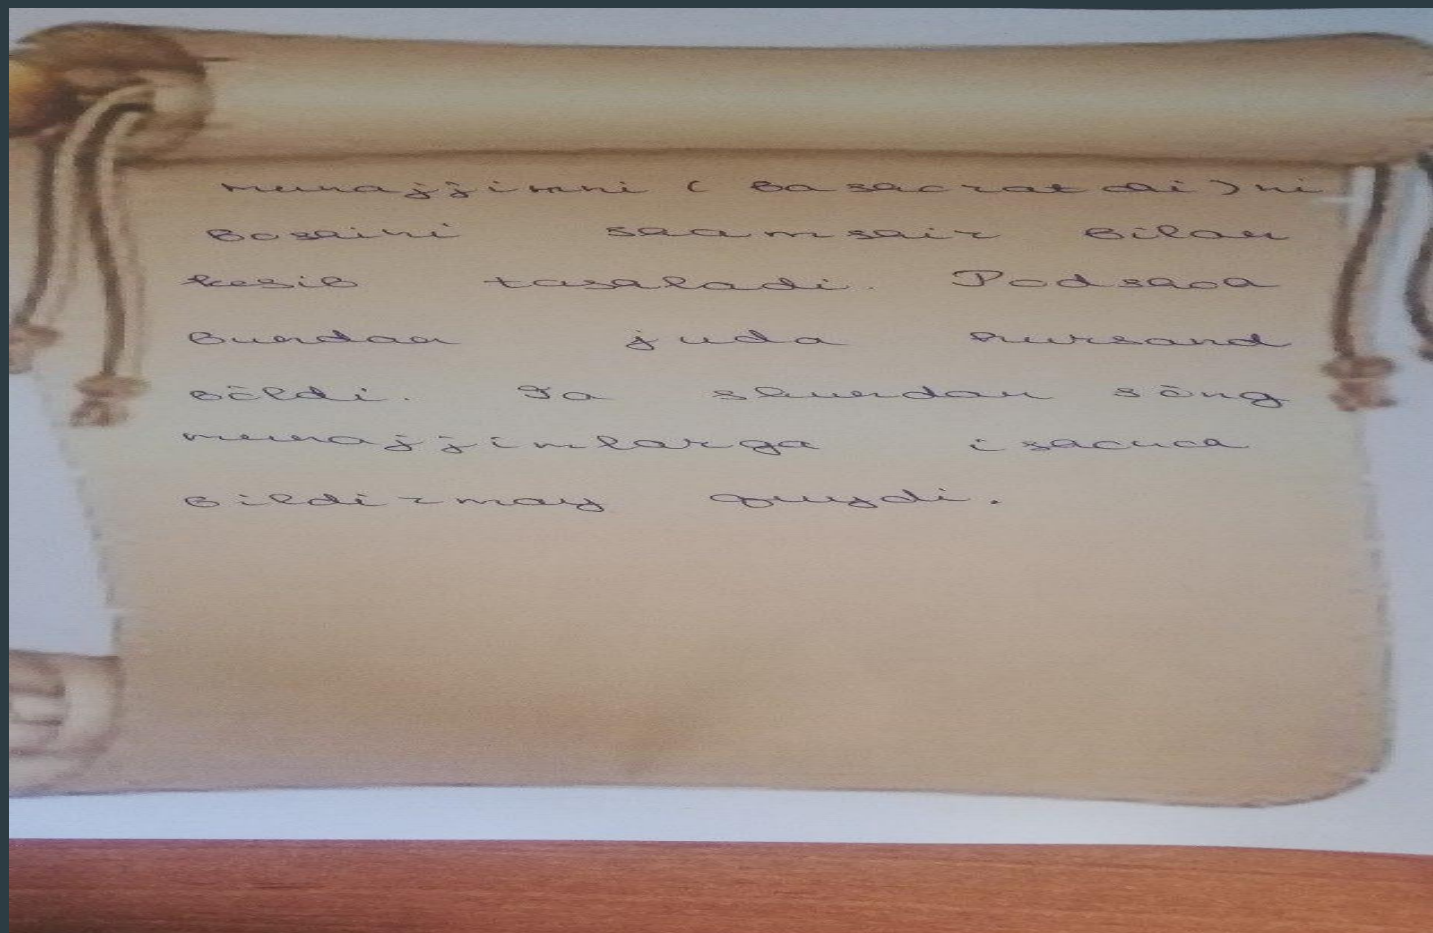 munajjimni (Bashoratchi)ni
boshini shamshir bilan
kesib tashladi. Podshoh
bundan juda hursand
bōldi. Va shundan sōng
munajjimlarga ishonch
bildirmay quydi.